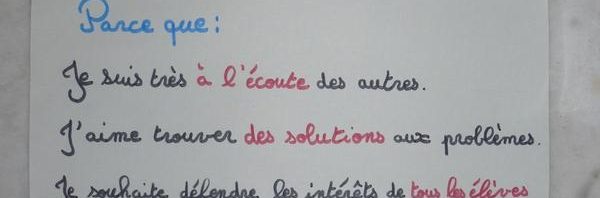 Parce que :
Je suis très à l'écoute des autres.
J'aime trouver des solutions aux problèmes.
Je souhaite défendre les intérêts de tous les élèves